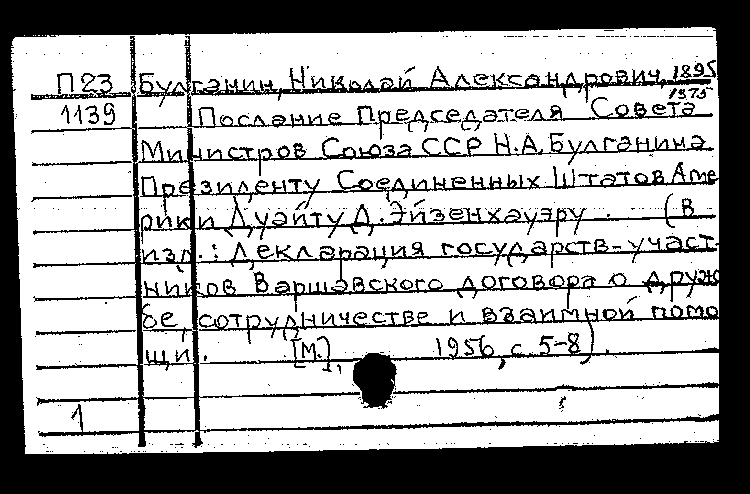 П23 Булганин, Николай Александрович, 1895
1975
1139 Послание Председателя Совета
Министров Союза ССР Н.А. Булганина
Президенту Соединенных Штатов Аме
рики Дуайту Д. Эйзенхауэру. (В
изд.: Декларация государств-участ-
ников Варшавского договора о друж
бе, сотрудничестве и взаимной помо
щи. [М.], 1956, с. 5-8).
1